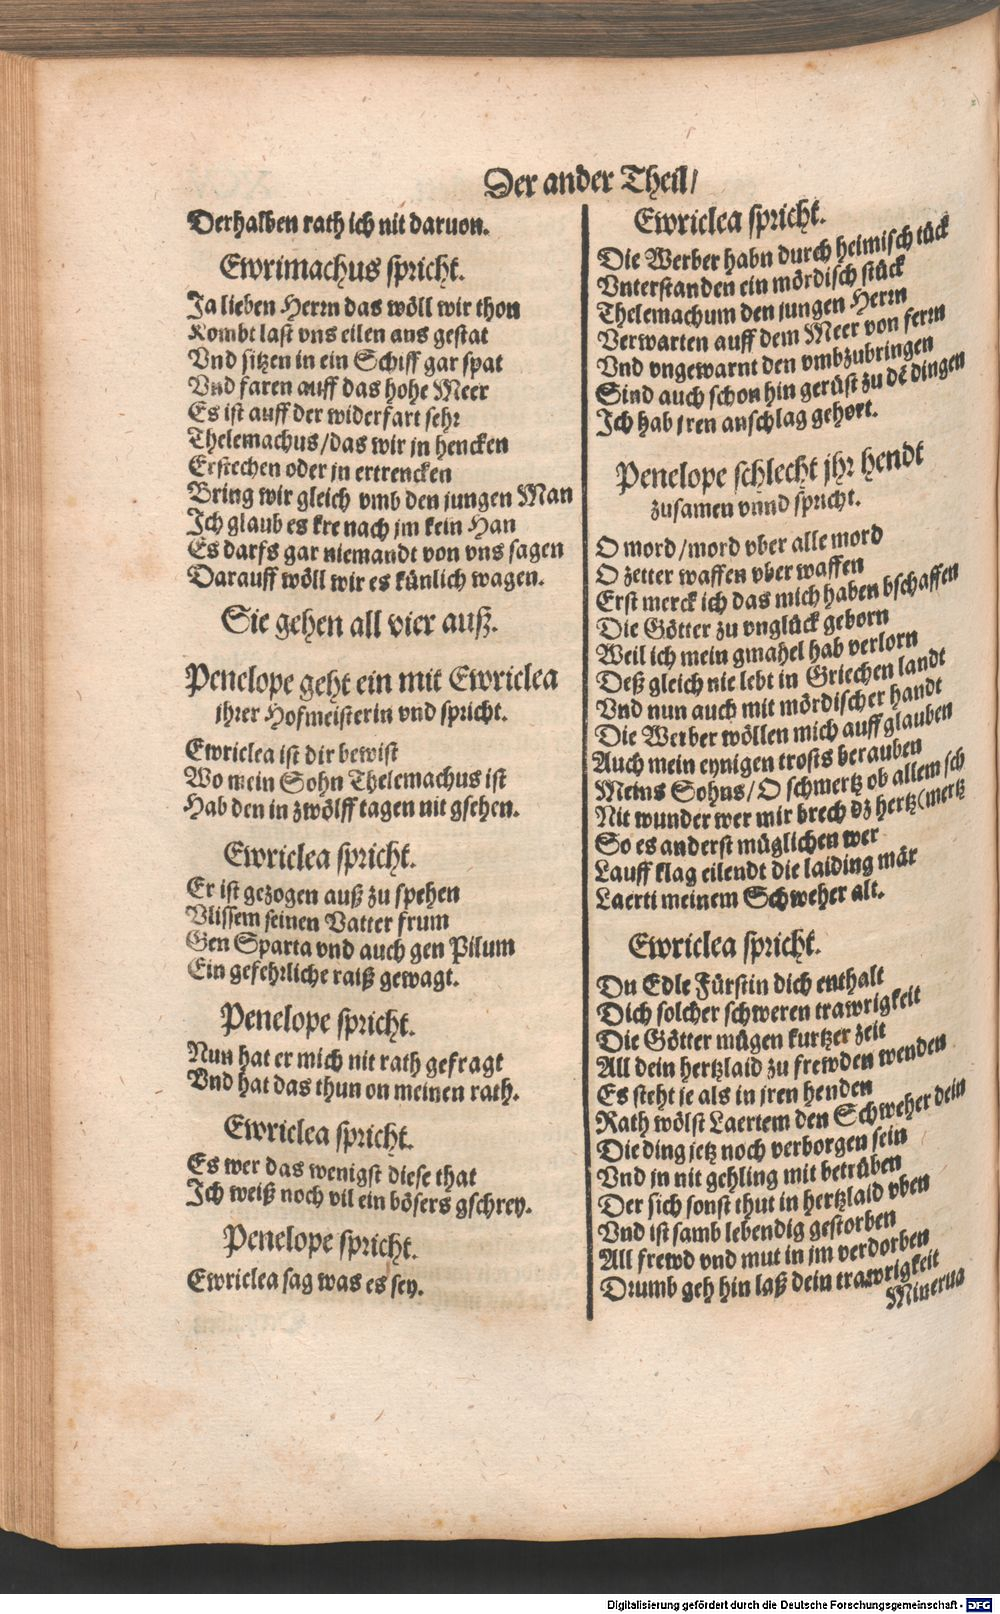 Der ander Theil/
Derhalben rath ich nit daruon.
Ewrimachus spricht.
Ja lieben Herrn das wöll wir thon
Kombt last vns eilen ans gestat
Vnd sitzen in ein Schiff gar spat
Vnd faren auff das hohe Meer
Es ist auff der widerfart sehr
Thelemachus/das wir jn hencken
Erstechen oder jn ertrencken
Bring wir gleich vmb den jungen Man
Ich glaub es kre nach jm kein Han
Es darfs gar niemandt von vns sagen
Darauff wöll wir es künlich wagen.
Sie gehen all vier auß.
Penelope geht ein mit Ewriclea
jhrer Hofmeisterin vnd spricht.
Ewriclea ist dir bewist
Wo mein Sohn Thelemachus ist
Hab den in zwölff tagen nit gsehen.
Ewriclea spricht.
Er ist gezogen auß zu spehen
Vlissem seinen Vatter frum
Gen Sparta vnd auch gen Pilum
Ein gefehrliche raiß gewagt.
Penelope spricht.
Nun hat er mich nit rath gefragt
Vnd hat das thun on meinen rath.
Ewriclea spricht.
Es wer das wenigst diese that
Ich weiß noch vil ein bösers gschrey.
Penelope spricht.
Ewriclea sag was es sey.
Ewriclea spricht.
Die Werber habn durch heimisch tück
Vnterstanden ein mördisch stück
Thelemachum den jungen Herrn
Verwarten auff dem Meer von ferrn
Vnd vngewarnt den vmbzubringen
Sind auch schon hin gerüst zu dē dingen
Ich hab jren anschlag gehort.
Penelope schlecht jhr hendt
zusamen vnnd spricht.
O mord/mord vber alle mord
O zetter waffen vber waffen
Erst merck ich das mich haben bschaffen
Die Götter zu vnglück geborn
Weil ich mein gmahel hab verlorn
Deß gleich nie lebt in Griechen landt
Vnd nun auch mit mördischer handt
Die Werber wöllen mich auff glauben
Auch mein eynigen trosts berauben
Meins Sohns/O schmertz ob allem sch
Nit wunder wer mir brech dz hertz(mertz
So es anderst müglichen wer
Lauff klag eilendt die laiding mär
Laerti meinem Schweher alt.
Ewriclea spricht.
Du Edle Fürstin dich enthalt
Dich solcher schweren trawrigkeit
Die Götter mügen kurtzer zeit
All dein hertzlaid zu frewden wenden
Es steht je als in jren henden
Rath wölst Laertem den Schweher dein
Die ding jetz noch verborgen sein
Vnd jn nit gehling mit betrüben
Der sich sonst thut in hertzlaid vben
Vnd ist samb lebendig gestorben
All frewd vnd mut in jm verdorben
Drumb geh hin laß dein trawrigkeit
Minerua
Digitalisierung gefördert durch die Deutsche Forschungsgemeinschaft - DFG